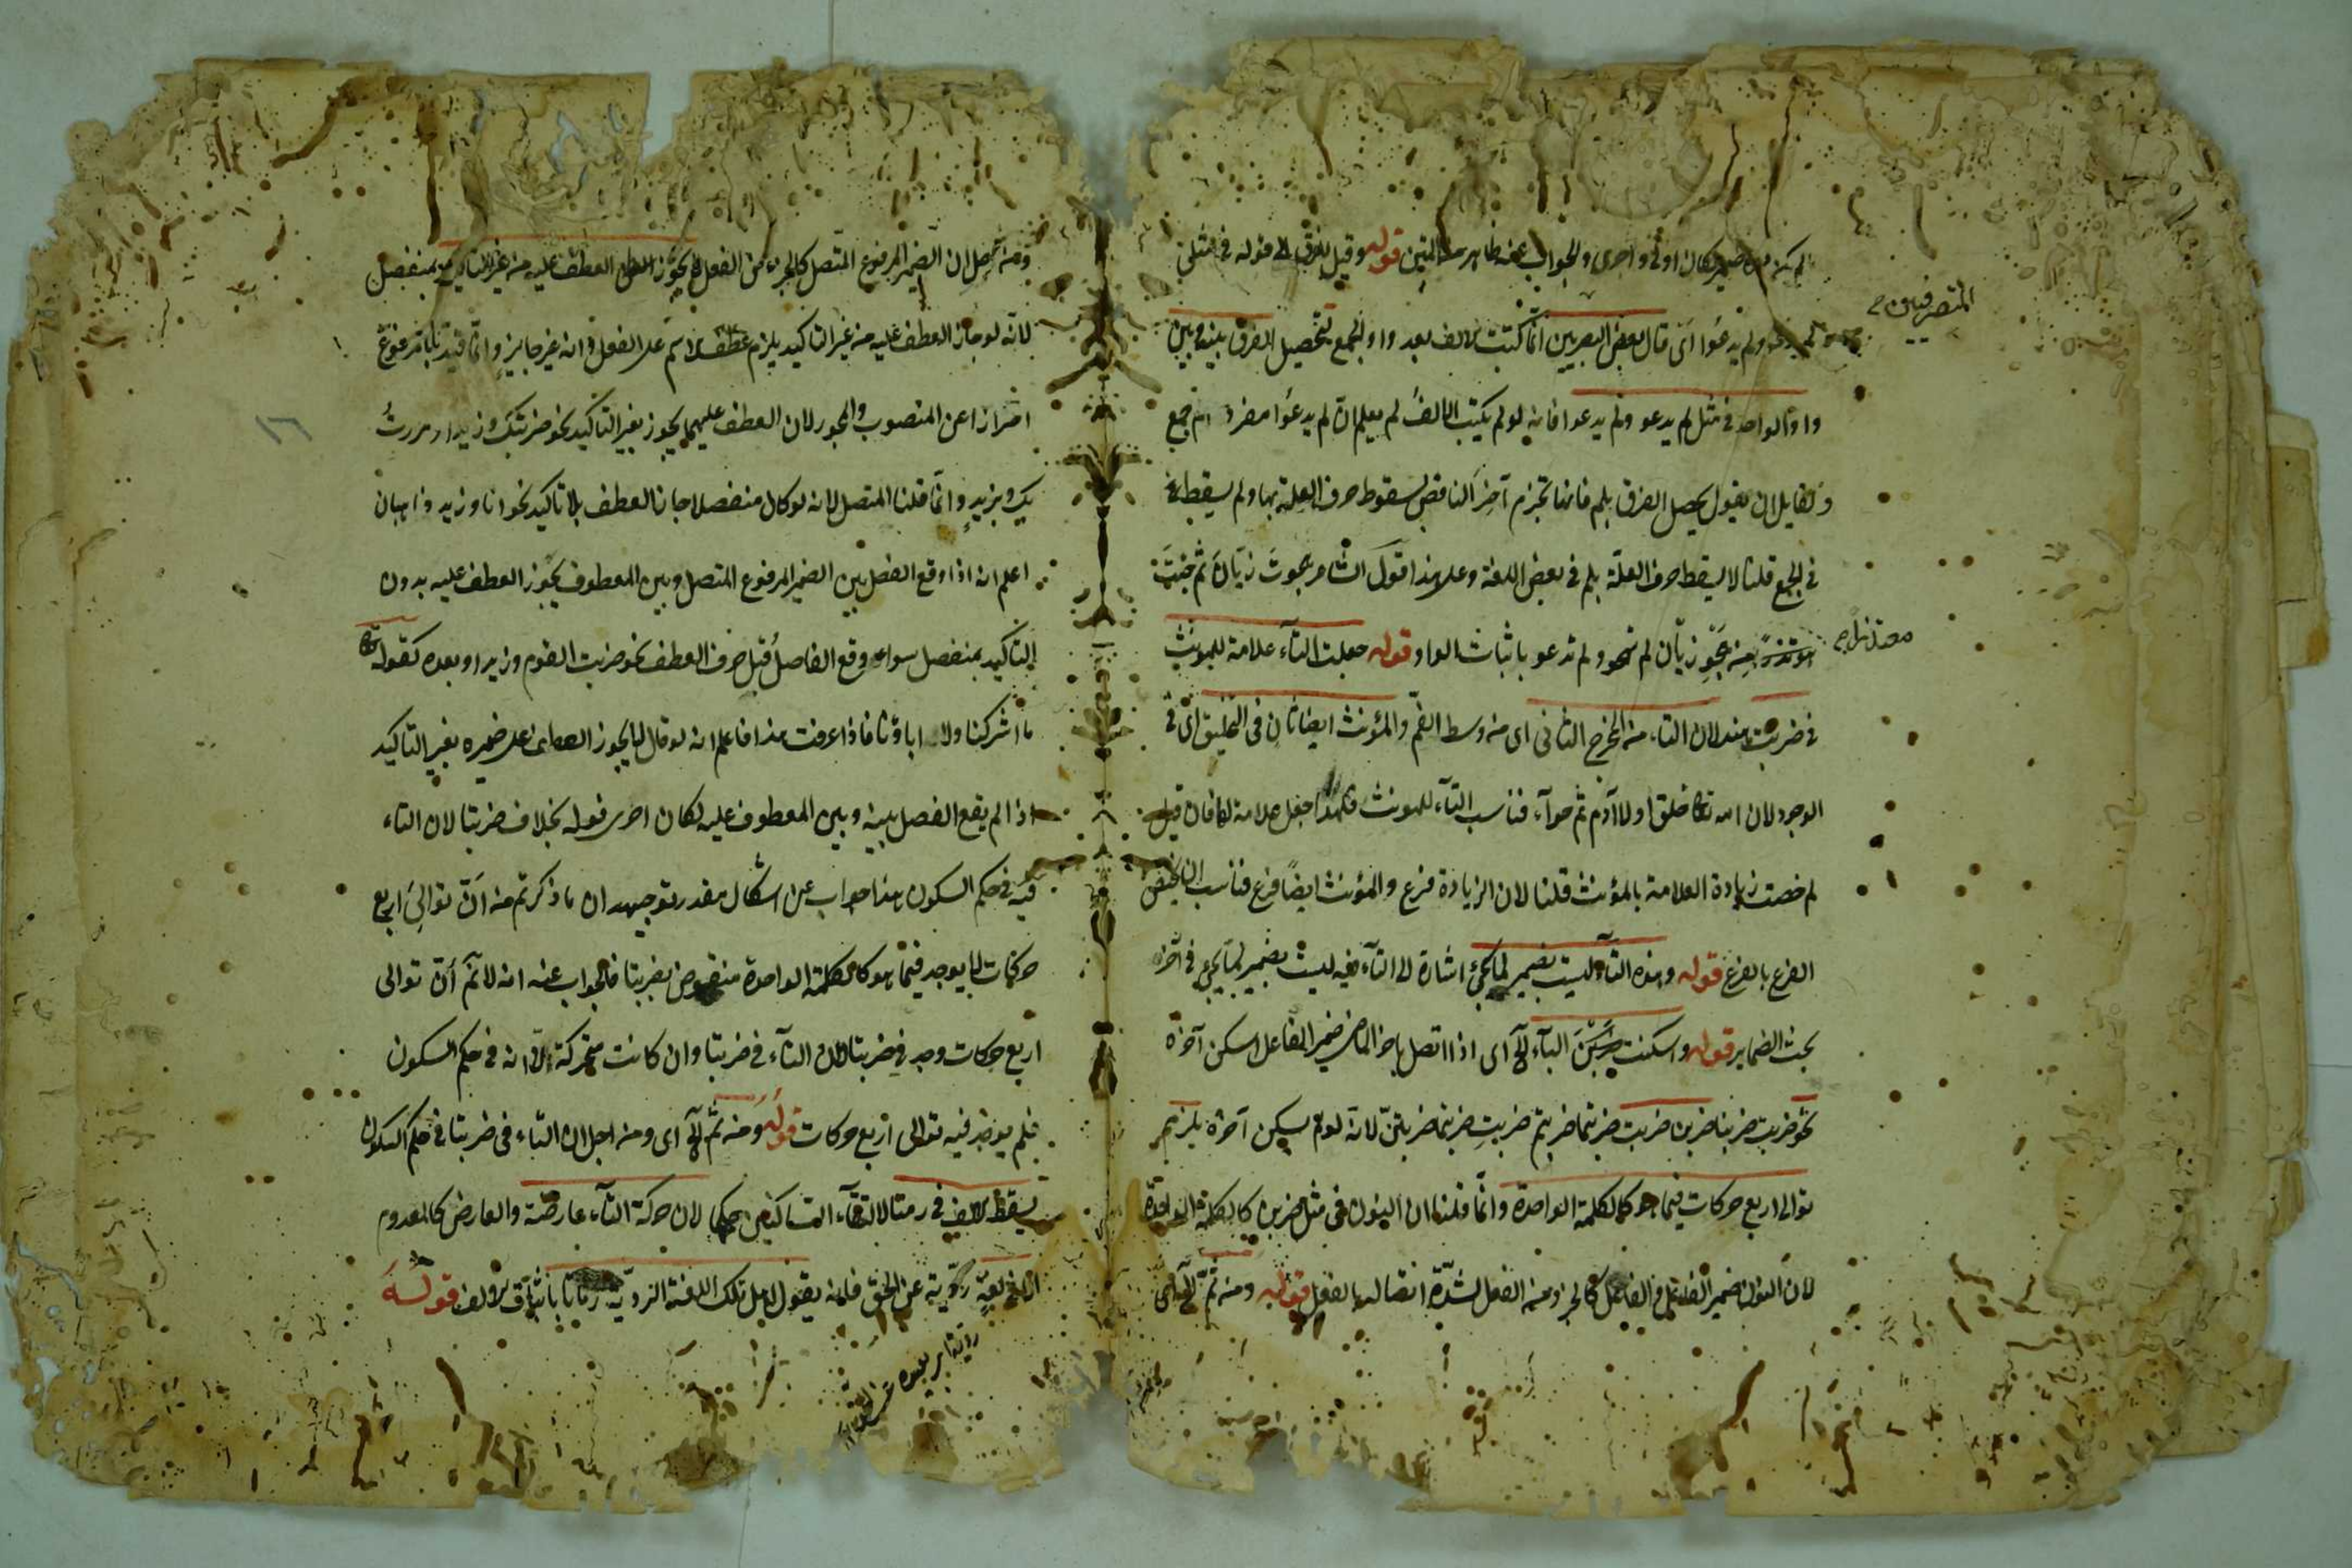 كان اولى واحرى والجواب عنه ظاهر من المتين قوله وقيل للفرق الى قوله في مثل
لم يدعو ولم يدعوا اى قال بعض البصريين انما كتبت الالف بعد واو الجمع لتحصيل الفرق بينه وبين
واو الواحد في مثل لم يدعو ولم يدعوا فانه لو لم يكتب الالف لم يعلم ان لم يدعوا مفرد ام جمع
ولقايل ان يقول يحصل الفرق بلم فانها تجزم آخر الناقص بسقوط حرف العلة بها ولم يسقط
في الجمع قلنا لا يسقط حرف العلة بلم في بعض اللغة وعلى هذا قول الشاعر هجوت زبان ثم جئت
معتذرا من هجو زبان لم تهجو ولم تدعو باثبات الواو قوله جعلت التاء علامة للمؤنث
في ضربت هند لان التاء من المخرج الثاني اى من وسط الفم والمؤنث ايضا ثان في التخليق اى في
الوجود لان الله تعا خلق اولا آدم ثم حوآء فناسب التآء للمؤنث فلهذا جعل علامة لها فان قيل
لم خصت زيادة العلامة بالمؤنث قلنا لان الزيادة فرع والمؤنث ايضا فرع فناسب
الفرع بالفرع قوله وهذه التاء ليست بضمير لما يجئ اشارة الى التآء فيه ليست بضمير لما يجئ في آخر
بحث الضماير قوله واسكنت البآء الخ اى اذا اتصل باخر الماضي ضمير الفاعل اسكن آخره
نحو ضربت ضربنا ضربن ضربت ضربتما ضربتم ضربت ضربتما ضربتن لانه لو لم يسكن آخره يلزم
توالى اربع حركات فيما هو كالكلمة الواحدة وانما قلنا ان النون في مثل ضربن كالكلمة الواحدة
لان النون ضمير الفاعل والفاعل كالجزء من الفعل لشدة اتصاله بالفعل قوله ومن ثم
المتصرفين
معتذرا
ومن اجل ان الضمير المرفوع المتصل كالجزء من الفعل لا يجوز العطف عليه من غير التاكيد بمنفصل
لانه لو جاز العطف عليه من غير التاكيد يلزم عطف الاسم على الفعل وانه غير جايز وانما قيدنا بالمرفوع
احترازا عن المنصوب والمجرور لان العطف عليهما يجوز بغير التاكيد نحو ضربتك وزيدا ومررت
بك وبزيد وانما قلنا المتصل لانه لو كان منفصلا جاز العطف بلا تاكيد نحو انا وزيد ذاهبان
اعلم انه اذا وقع الفصل بين الضمير المرفوع المتصل وبين المعطوف يجوز العطف عليه بدون
التاكيد بمنفصل سواء وقع الفاصل قبل حرف العطف نحو ضربت القوم وزيد او بعده كقوله تعا
ما اشركنا ولا اباؤنا فاذا عرفت هذا فاعلم انه لو قال لا يجوز العطف على ضميره بغير التاكيد
اذا لم يقع الفصل بينه وبين المعطوف عليه لكان احرى قوله بخلاف ضربتا لان التاء
فيه في حكم السكون هذا جواب عن اشكال مقدر توجيهه ان ما ذكرتم من ان توالي اربع
حركات لا يوجد فيما هو كالكلمة الواحدة منقوض بضربتا فالجواب عنه انه لا نم ان توالى
اربع حركات وجد في ضربتا لان التآء في ضربتا وان كانت متحركة الا انه في حكم السكون
فلم يوجد فيه توالى اربع حركات قوله ومن ثم الخ اى ومن اجل ان التاء في ضربتا في حكم السكون
يسقط الالف في رمتا لالتقآء الساكنين حكما لان حركة التآء عارضة والعارض كالمعدوم
لغة ردية عن الحق فانه يقول اهل تلك اللغة الردية رماتا باثبات الالف قوله
١٦